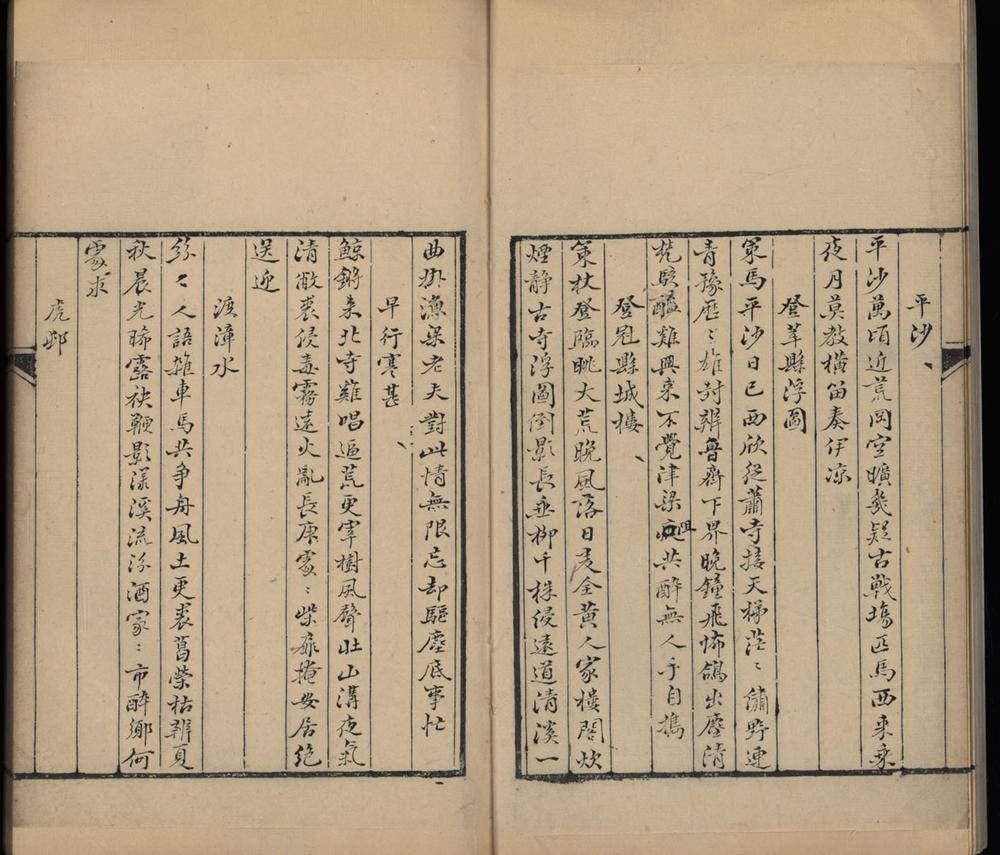 平沙
平沙萬頃近荒岡空曠幾疑古戰場匹馬西来乗
夜月莫教橫笛奏伊凉
登莘縣浮圖
策馬平沙日已西欣從蕭寺接天梯茫〻繡野連
青豫歷〻雄封辨魯齊下界晚鐘飛怖鴿出塵清
梵駭醯雞興来不覺津梁疲共醉無人手自携
登冠縣城樓
策杖登臨眺大荒晚風落日麦全黄人家樓閣炊
煙静古寺浮圖倒影長垂柳千株侵遠道清溪一
曲掛漁梁老夫對此情無限忘却驅塵底事忙
早行寒甚
鯨鏘来北寺雞唱逼荒更宰樹風聲壮山溝夜氣
清敝裘侵毒霧遠火亂長庚家〻柴扉掩安居絶
送迎
渡漳水
紛〻人語雜車馬共争舟風土更裘葛榮枯辨夏
秋晨光晞露袂鞭影漾溪流汾酒家〻市醉鄉何
處求
虎邨